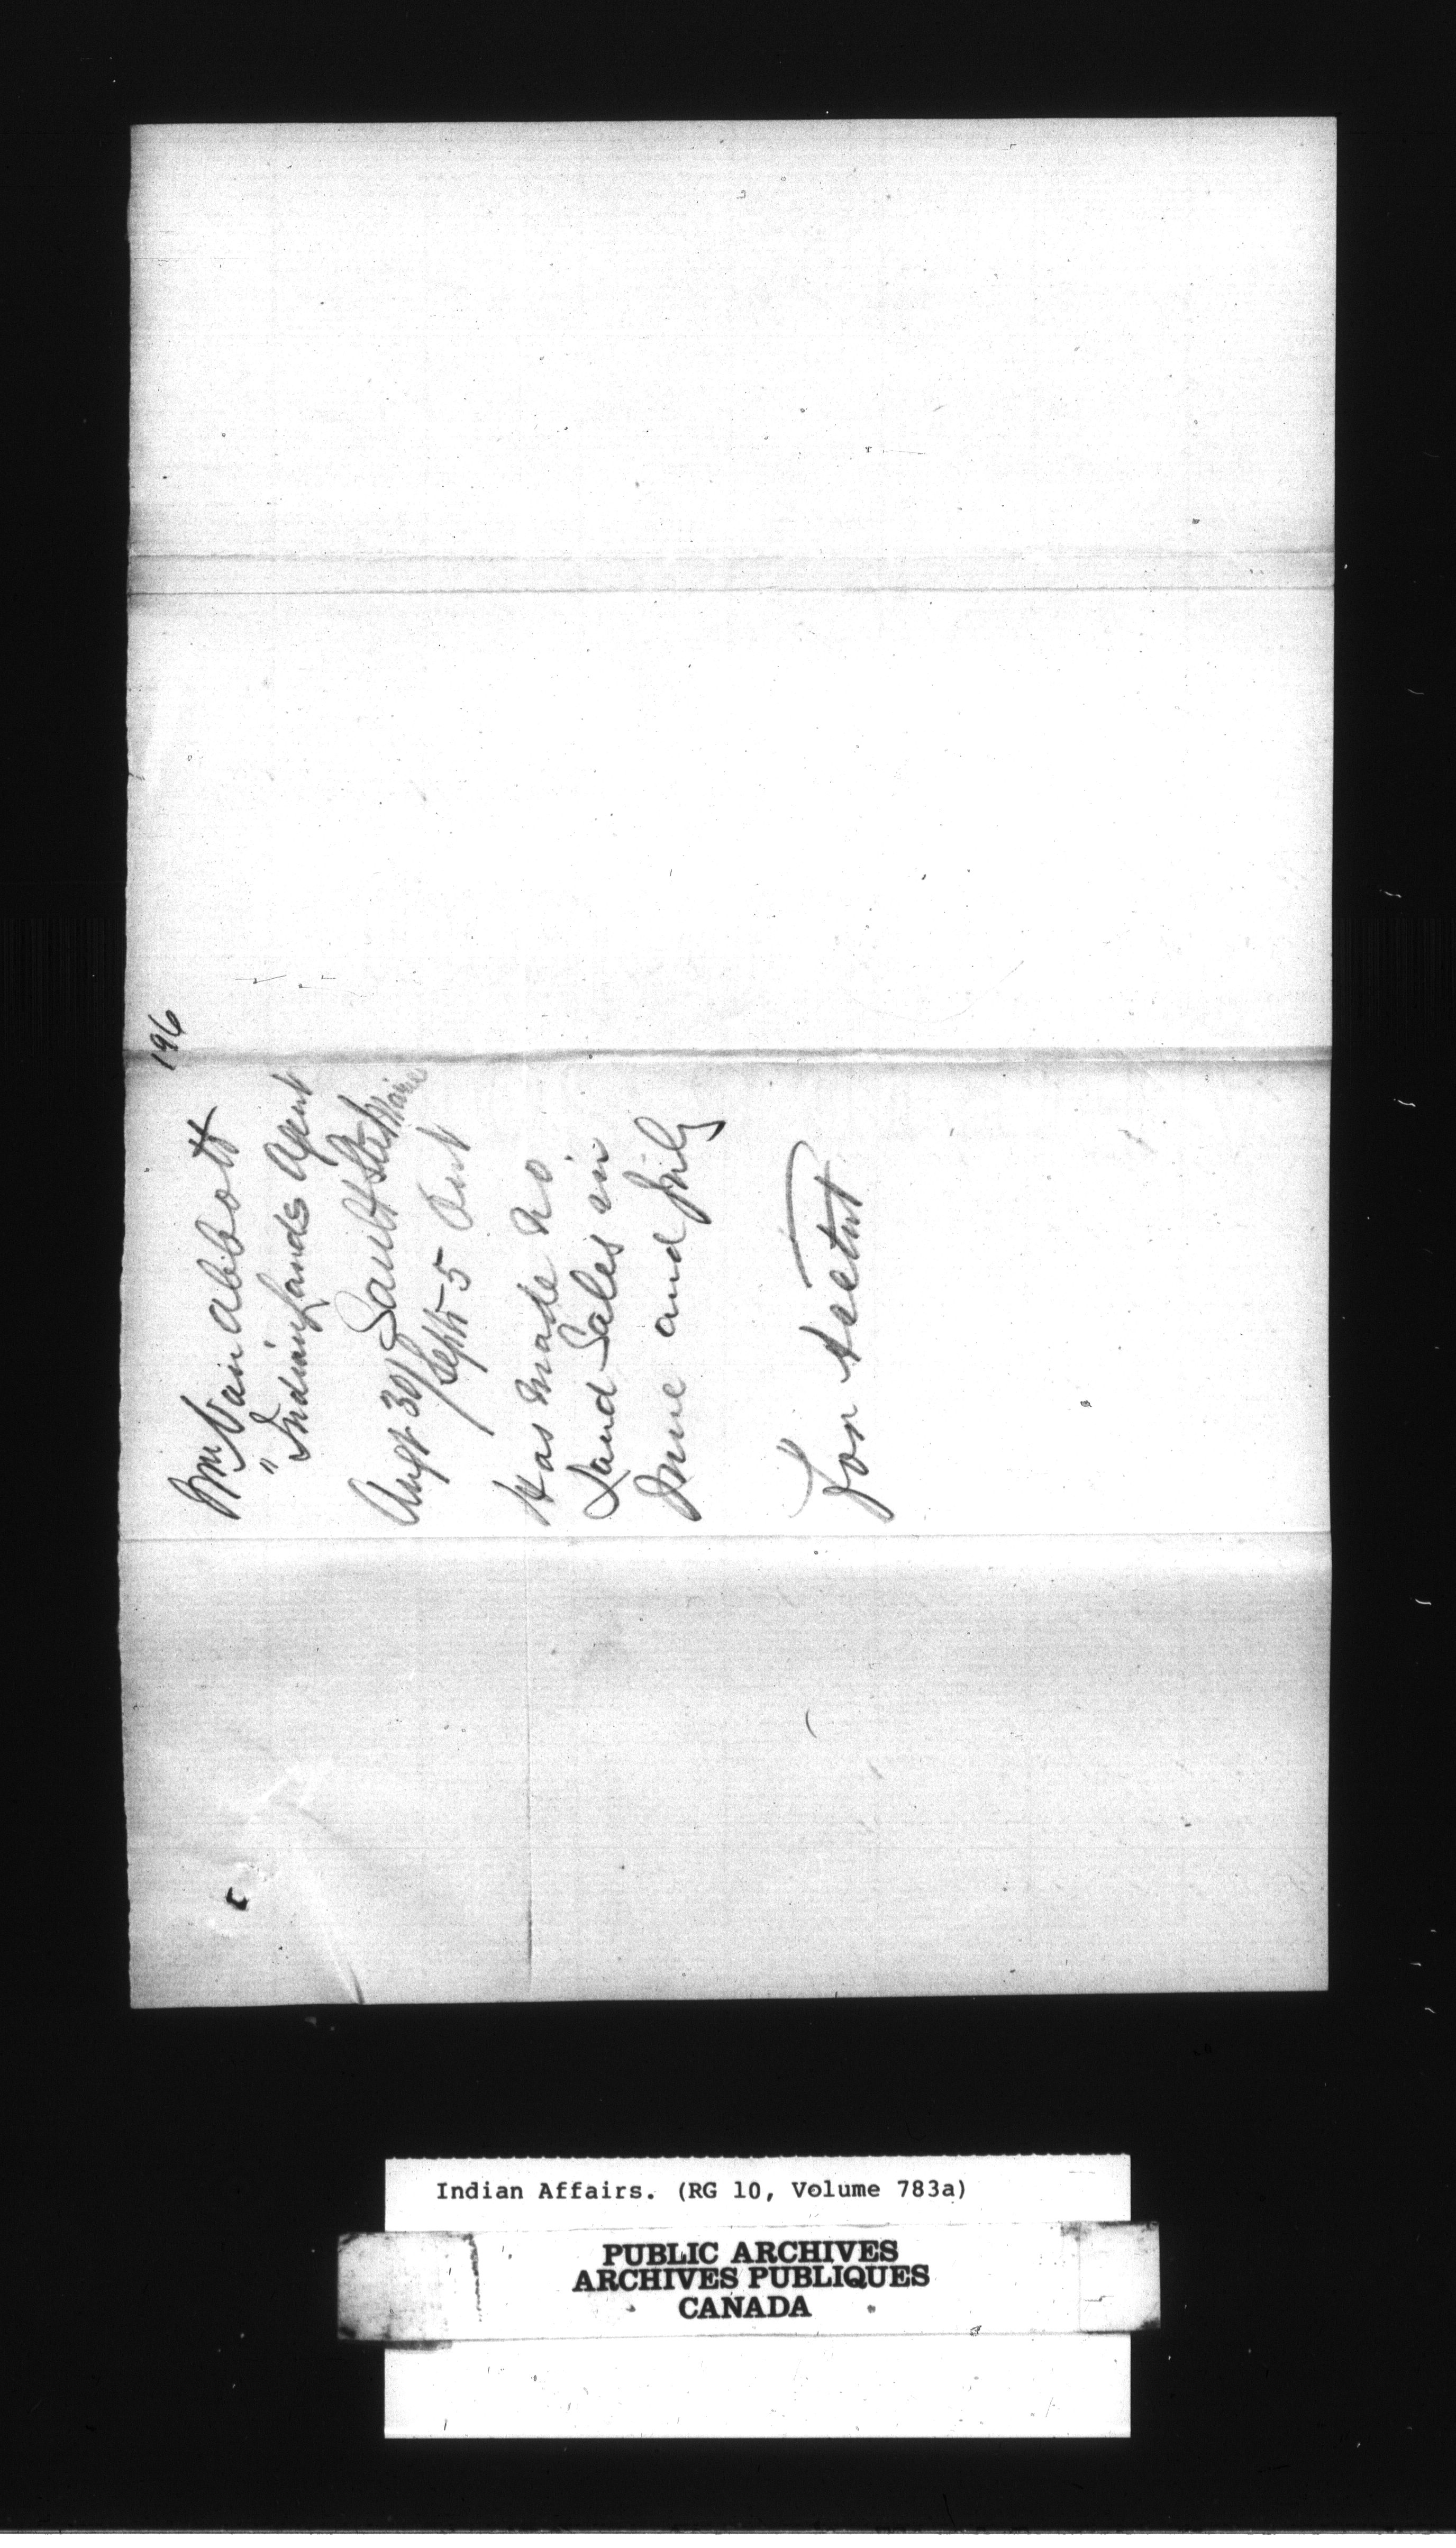 196
Wm Van Abbott
" Indian Lands Agent
Sault Ste Marie
Augt 30/
Sept 5
Has made no
Land Sales in
June and July
For
Indian Affairs. (RG 10, Volume 783a)
PUBLIC ARCHIVES
ARCHIVES PUBLIQUES
CANADA